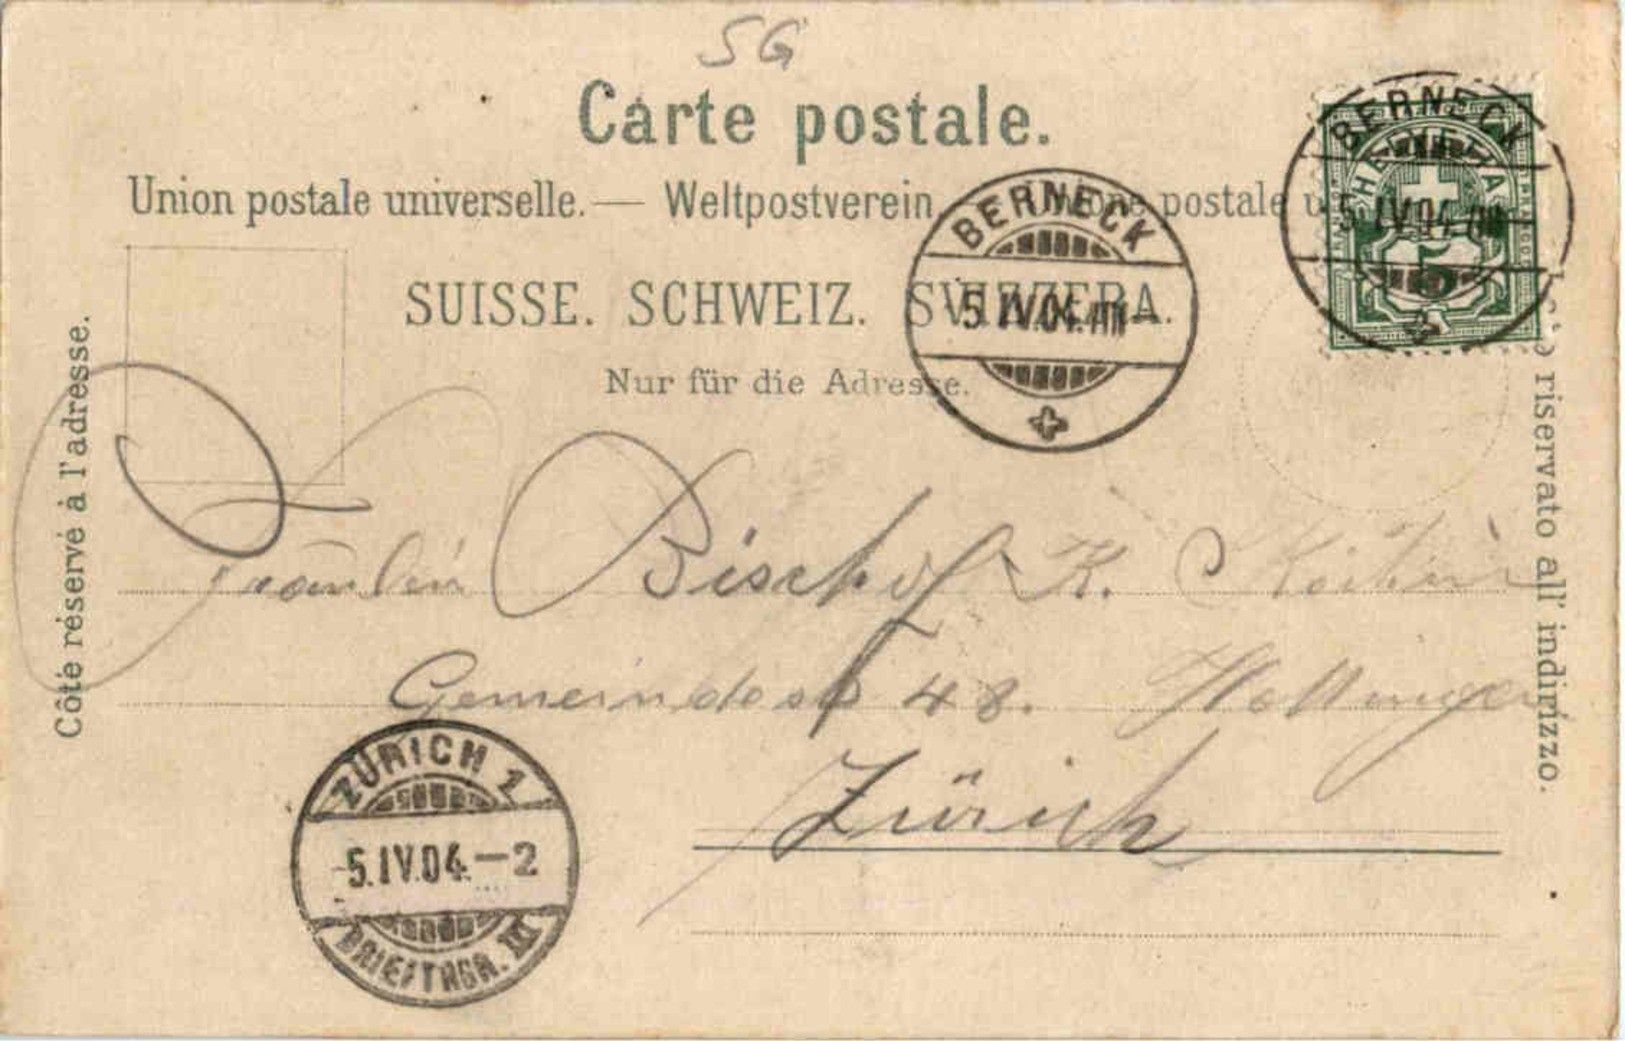 SG
Carte postale.
Union postale universelle. — Weltpostverein postale
SUISSE. SCHWEIZ. SVIZZERA.
Nur für die Adresse.
Côté réservé à l'adresse.
riservato all' indirizzo.
BERNECK
HELVETIA
5.IV.04.
5
BERNECK
5.IV.04.
Fräulein Bischof K.
Gemeindestr 48. Hottingen
Zürich
ZÜRICH 1
-5.IV.04.-2
BRIEFTRGR. III